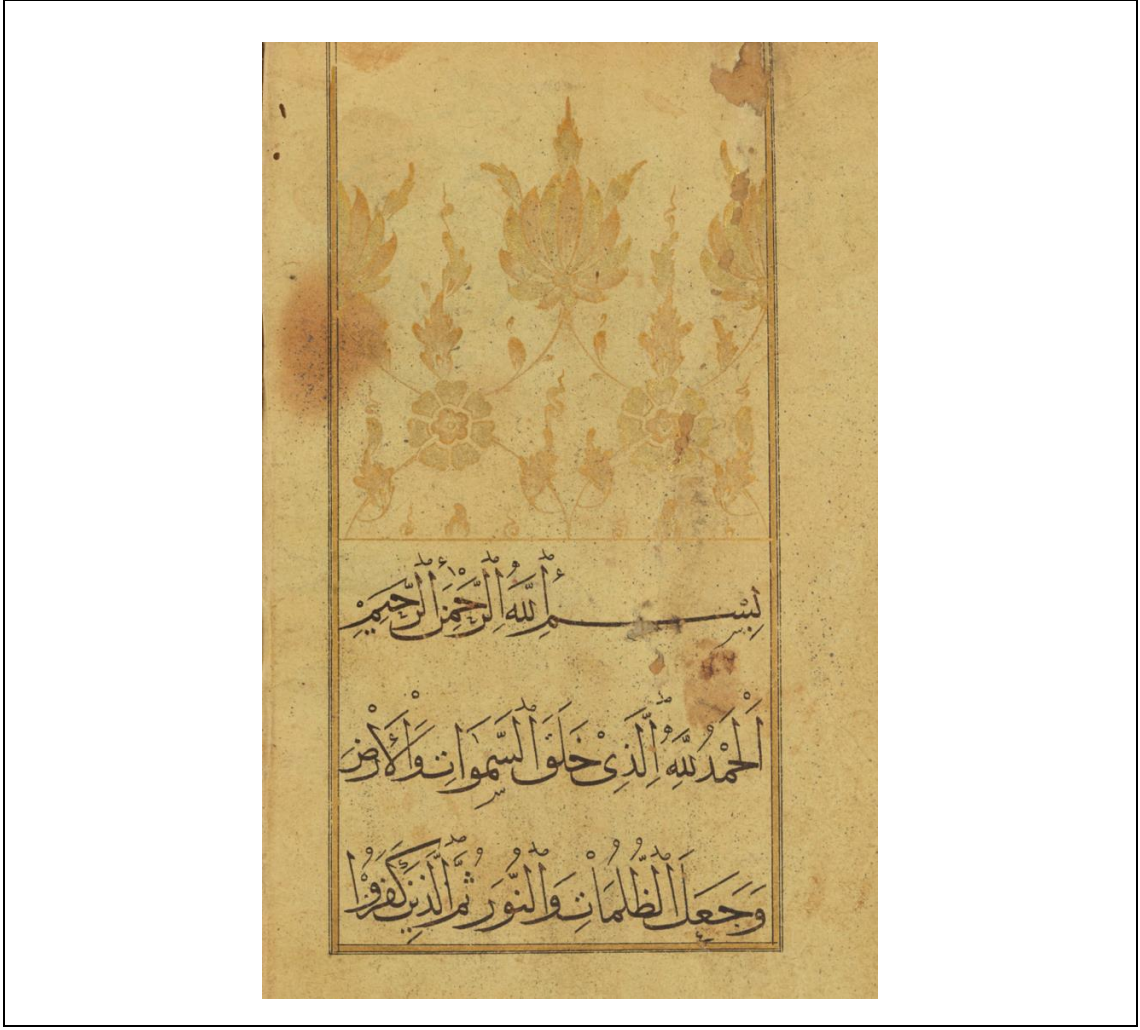 بِسْمِ ٱللَّهِ ٱلرَّحْمَٰنِ ٱلرَّحِيمِ
اَلْحَمْدُ لِلَّهِ ٱلَّذِىْ خَلَقَ ٱلسَّمٰوَاتِ وَٱلْأَرْضَ
وَجَعَلَ ٱلظُّلُمَاتِ وَٱلنُّوْرَ ثُمَّ ٱلَّذِيْنَ كَفَرُوْا